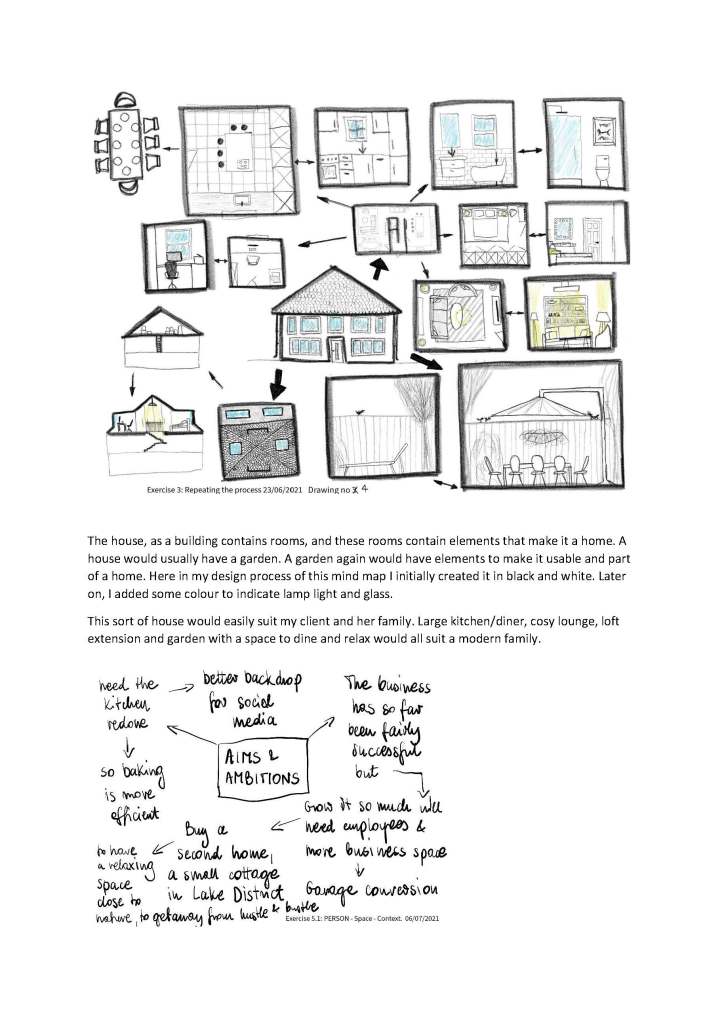 Exercise 3: Repeating the process 23/06/2021 Drawing no 4
The house, as a building contains rooms, and these rooms contain elements that make it a home. A
house would usually have a garden. A garden again would have elements to make it usable and part
of a home. Here in my design process of this mind map I initially created it in black and white. Later
on, I added some colour to indicate lamp light and glass.
This sort of house would easily suit my client and her family. Large kitchen/diner, cosy lounge, loft
extension and garden with a space to dine and relax would all suit a modern family.
need the
kitchen
redone
better backdrop
for social
media
so baking
is more
efficient
AIMS &
AMBITIONS
The business
has so far
been fairly
successful
but
Grow it so much will
need employees &
more business space
Garage conversion
Buy a
second home,
a small cottage
in Lake District
to have
a relaxing
space
close to
nature, to getaway from hustle & bustle
Exercise 5.1: PERSON - Space - Context. 06/07/2021